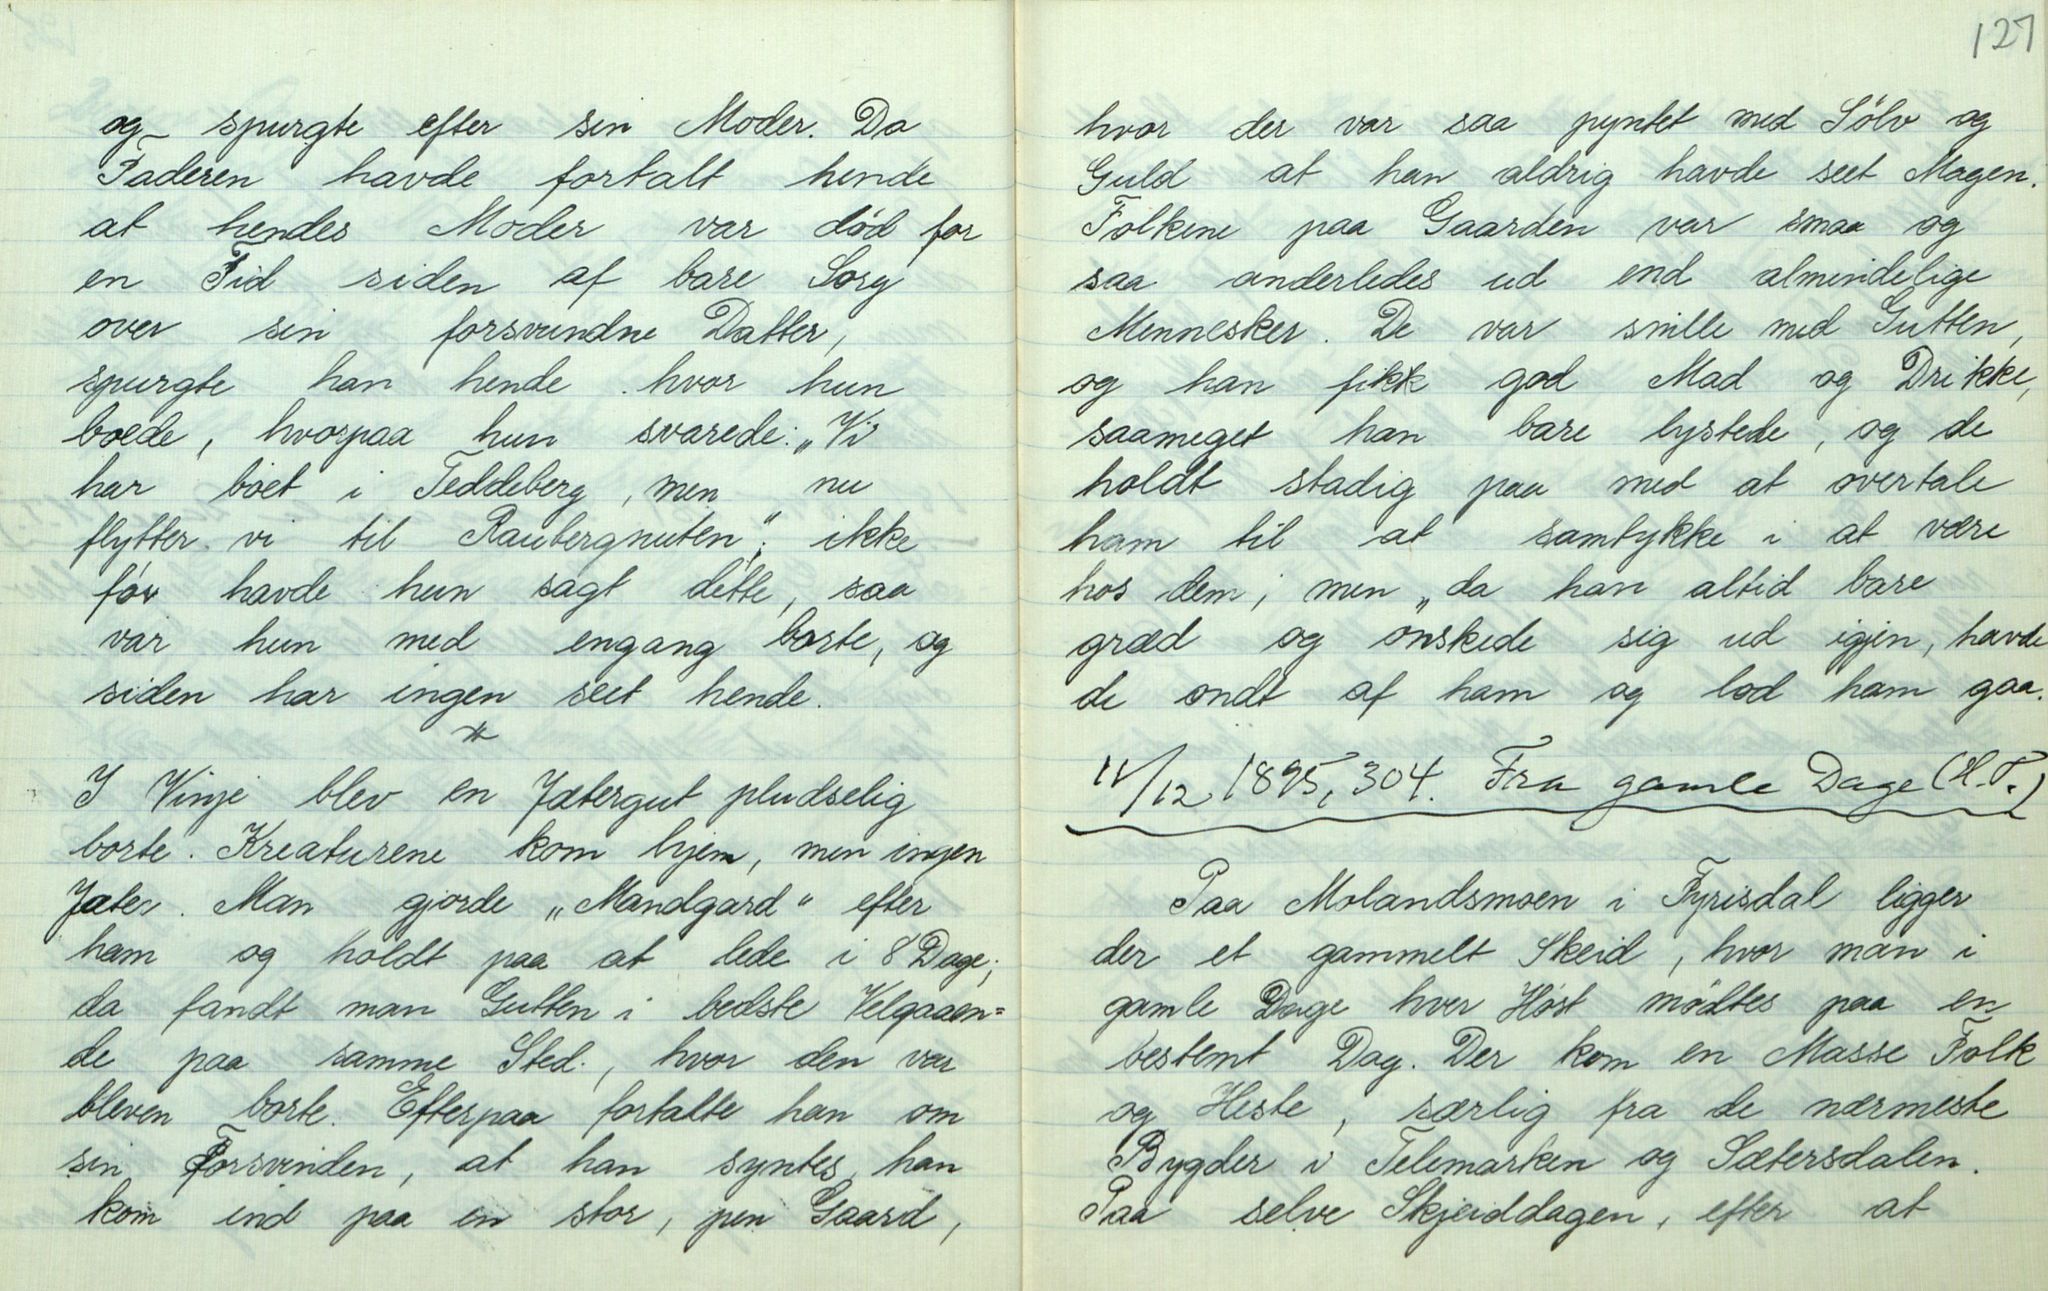 og spurgte efter sin Moder. Da
Faderen havde fortalt hende
at hendes Moder var død for
en Tid siden af bare Sorg
over sin forsvundne Datter,
spurgte han hende hvor hun
boede, hvorpaa hun svarede: „Vi
har boet i Teddeberg, men nu
flytter vi til Raubergnuten“; ikke
før havde hun sagt dette, saa
var hun med engang borte, og
siden har ingen seet hende.
*
I Vinje blev en Jætergut pludselig
borte. Kreaturene kom hjem, men ingen
Jæter. Man gjorde „Mandgard“ efter
ham og holdt paa at lede i 8 Dage;
da fandt man Gutten i bedste Velgaaen=
de paa samme Sted, hvor den var
bleven borte. Efterpaa fortalte han om
sin Forsvinden, at han syntes han
kom ind paa en stor, pen Gaard,
127
hvor der var saa pyntet med Sölv og
Guld at han aldrig havde seet Magen.
Folkene paa Gaarden var smaa og
saa anderledes ud end almindelige
Mennesker. De var snille med Gutten,
og han fikk god Mad og Drikke,
saameget han bare lystede, og de
holdt stadig paa med at overtale
ham til at samtykke i at være
hos dem; men „da han altid bare
græd og ønskede sig ud igjen, havde
de ondt af ham og lod ham gaa.
11/12 1895, 304. Fra gamle Dage (H.T.)
Paa Molandsmoen i Fyrisdal ligger
der et gammelt Skeid, hvor man i
gamle Dage hver Høst mödtes paa en
bestemt Dag. Der kom en Masse Folk
og Heste, særlig fra de nærmeste
Bygder i Telemarken og Sætersdalen.
Paa selve Skjeiddagen, efter at